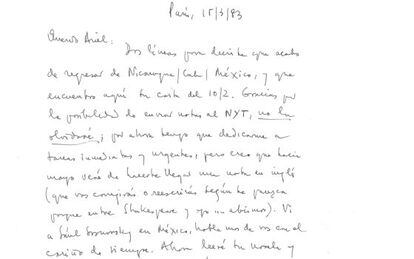 París, 15/3/83
Querido Ariel:
Dos líneas para decirte que acabo
de regresar de Nicaragua/Cuba/México, y que
encuentro aquí tu carta del 10/2. Gracias por
la posibilidad de enviar notas al NYT, no lo
olvidaré; por ahora tengo que dedicarme a
tareas inmediatas y urgentes, pero creo que hacia
mayo veré de hacerte llegar una nota en inglés
(que vos corregirás o reescribirás según te parezca
porque entre Shakespeare y yo... abismos). Vi
a Saúl Sosnowsky en México, hablamos de vos con el
cariño de siempre. Ahora leeré tu novela y